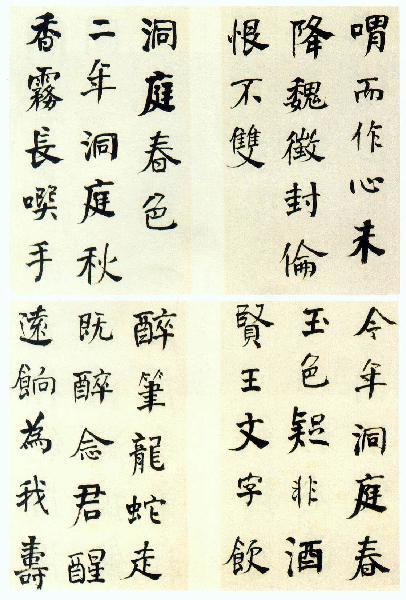 喟而作心未
降魏徵封倫
恨不雙
洞庭春色
二年洞庭秋
香霧長噀手
今年洞庭春
玉色疑非酒
賢王文字飲
醉筆龍蛇走
既醉念君醒
遠餉為我壽